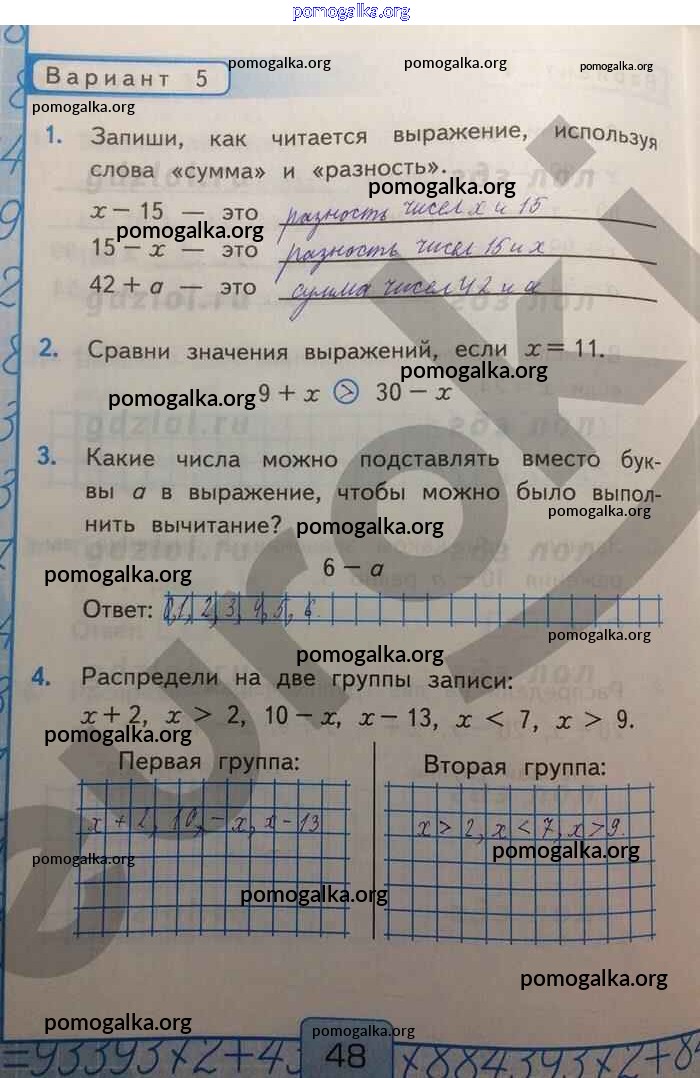 pomogalka.org
Вариант 5
pomogalka.org
pomogalka.org
pomogalka.org
pomogalka.org
1. Запиши, как читается выражение, используя
слова «сумма» и «разность».
pomogalka.org
x − 15 — это разность чисел x и 15
pomogalka.org
15 − x — это разность чисел 15 и x
42 + a — это сумма чисел 42 и a
2. Сравни значения выражений, если x = 11.
pomogalka.org
pomogalka.org
9 + x > 30 − x
3. Какие числа можно подставлять вместо бук-
вы a в выражение, чтобы можно было выпол-
pomogalka.org
нить вычитание?
pomogalka.org
pomogalka.org
6 − a
Ответ: 0,1,2,3,4,5,6.
pomogalka.org
pomogalka.org
4. Распредели на две группы записи:
x + 2, x > 2, 10 − x, x − 13, x < 7, x > 9.
pomogalka.org
Первая группа: Вторая группа:
x + 2, 10, − x, x − 13
x > 2, x < 7, x > 9.
pomogalka.org
pomogalka.org
pomogalka.org
pomogalka.org
pomogalka.org
pomogalka.org
48
euroki